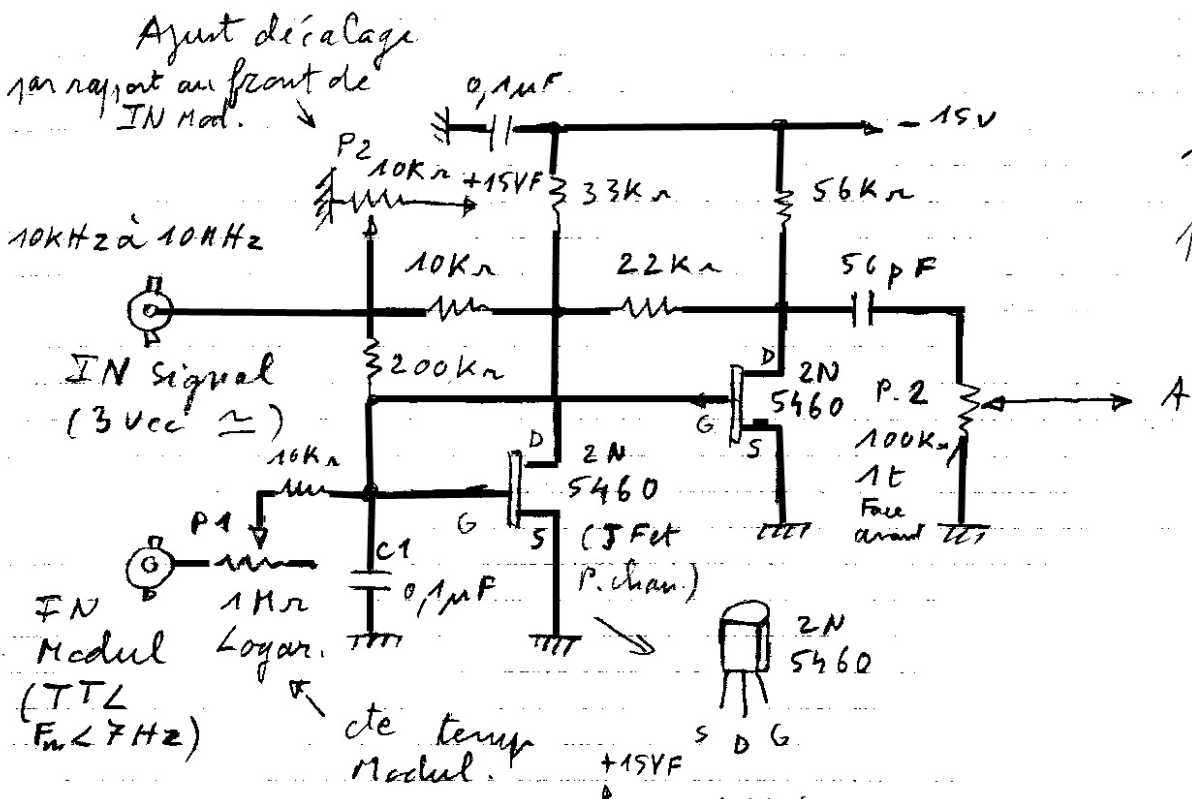 Ajust décalage
par rapport au front de
IN Mod.
0,1µF
- 15V
P2
10KΩ
+15VF
33KΩ
56KΩ
10KHz à 10MHz
10KΩ
22KΩ
56pF
IN Signal
(3Vcc ≃)
200KΩ
D
2N
5460
G
S
P.2
100KΩ
1t
Face
avant
A
10KΩ
D
2N
5460
G
S
(JFet
P.chan.)
P1
C1
0,1µF
1MΩ
Logar.
IN
Modul
(TTL
Fm<7Hz)
cte temp
Modul.
2N
5460
S D G
+15VF